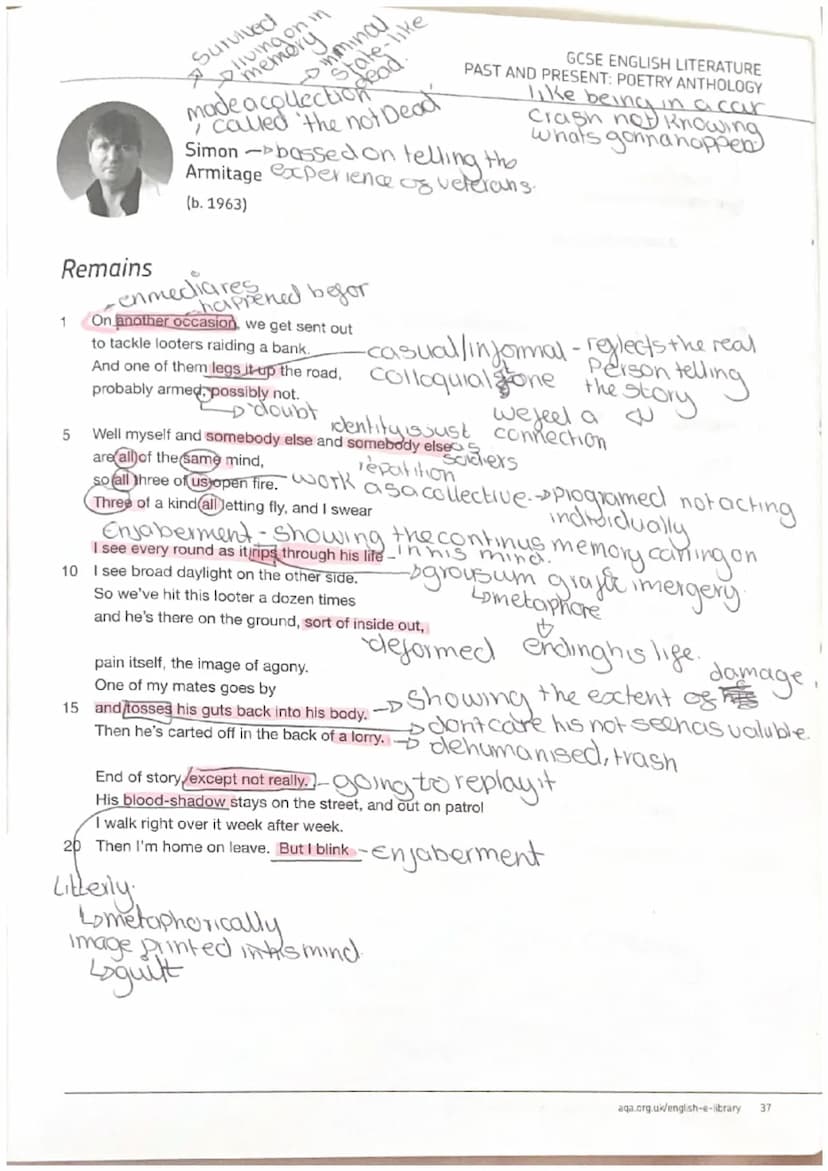 survived
living on in
memory
iniminal
state-like
dead.
GCSE ENGLISH LITERATURE
PAST AND PRESENT: POETRY ANTHOLOGY
made a collection
called 'the not Dead
like being in a car
crash not knowing
whats gonna happen
Simon → bassed on telling the
Armitage experience of veterans.
(b. 1963)
Remains
enmediares
happened befor
1 On another occasion, we get sent out
to tackle looters raiding a bank.
And one of them legs it up the road,
probably armed, possibly not.
casual/informal - reflects the real
colloquial tone Person telling
the story
→ doubt
we feel a
connection
identity is just
as soldiers
5 Well myself and somebody else and somebody else
are all of the same mind,
repatition
so all three of us open fire. - work as a collective. → programed not acting
individually
Three of a kind all letting fly, and I swear
Enjaberment - showing the continus memory carring on
in his mind.
I see every round as it rips through his life -
10 I see broad daylight on the other side. → grousum grafic imergery.
↳ metaphore
So we've hit this looter a dozen times
and he's there on the ground, sort of inside out,
deformed
ending his life.
pain itself, the image of agony.
One of my mates goes by
damage.
15 and tosses his guts back into his body. → showing the extent of
→ dont care his not seen as valuble.
Then he's carted off in the back of a lorry. → dehumanised, trash
End of story, except not really. - going to replay it
His blood-shadow stays on the street, and out on patrol
I walk right over it week after week.
20 Then I'm home on leave. But I blink - enjaberment
Litterly.
↳ metaphorically
image printed in his mind
↳ guilt
aqa.org.uk/english-e-library 37